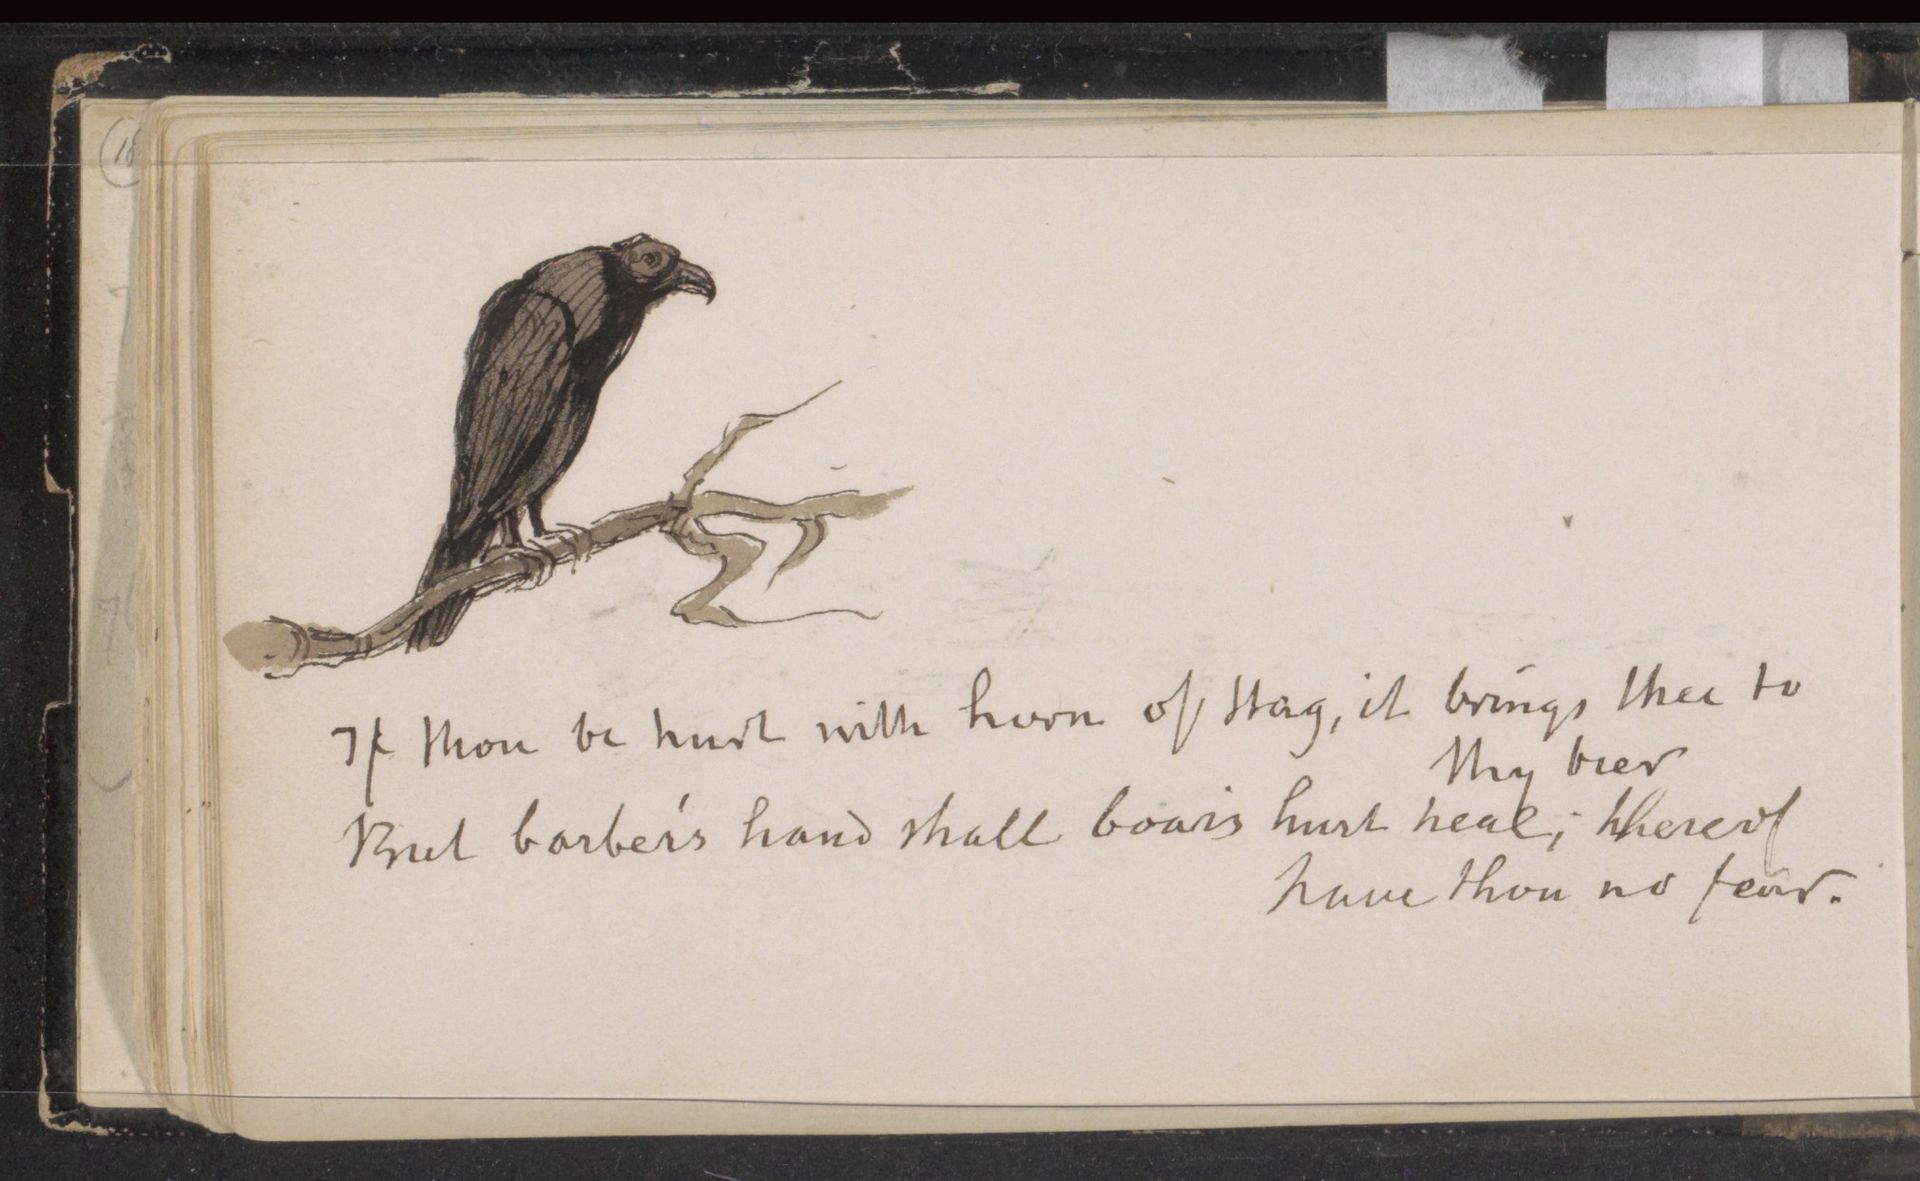 18
If thou be hurt with horn of stag, it brings thee to
thy bier
But barber's hand shall boars hurt heal; thereof
have thou no fear.